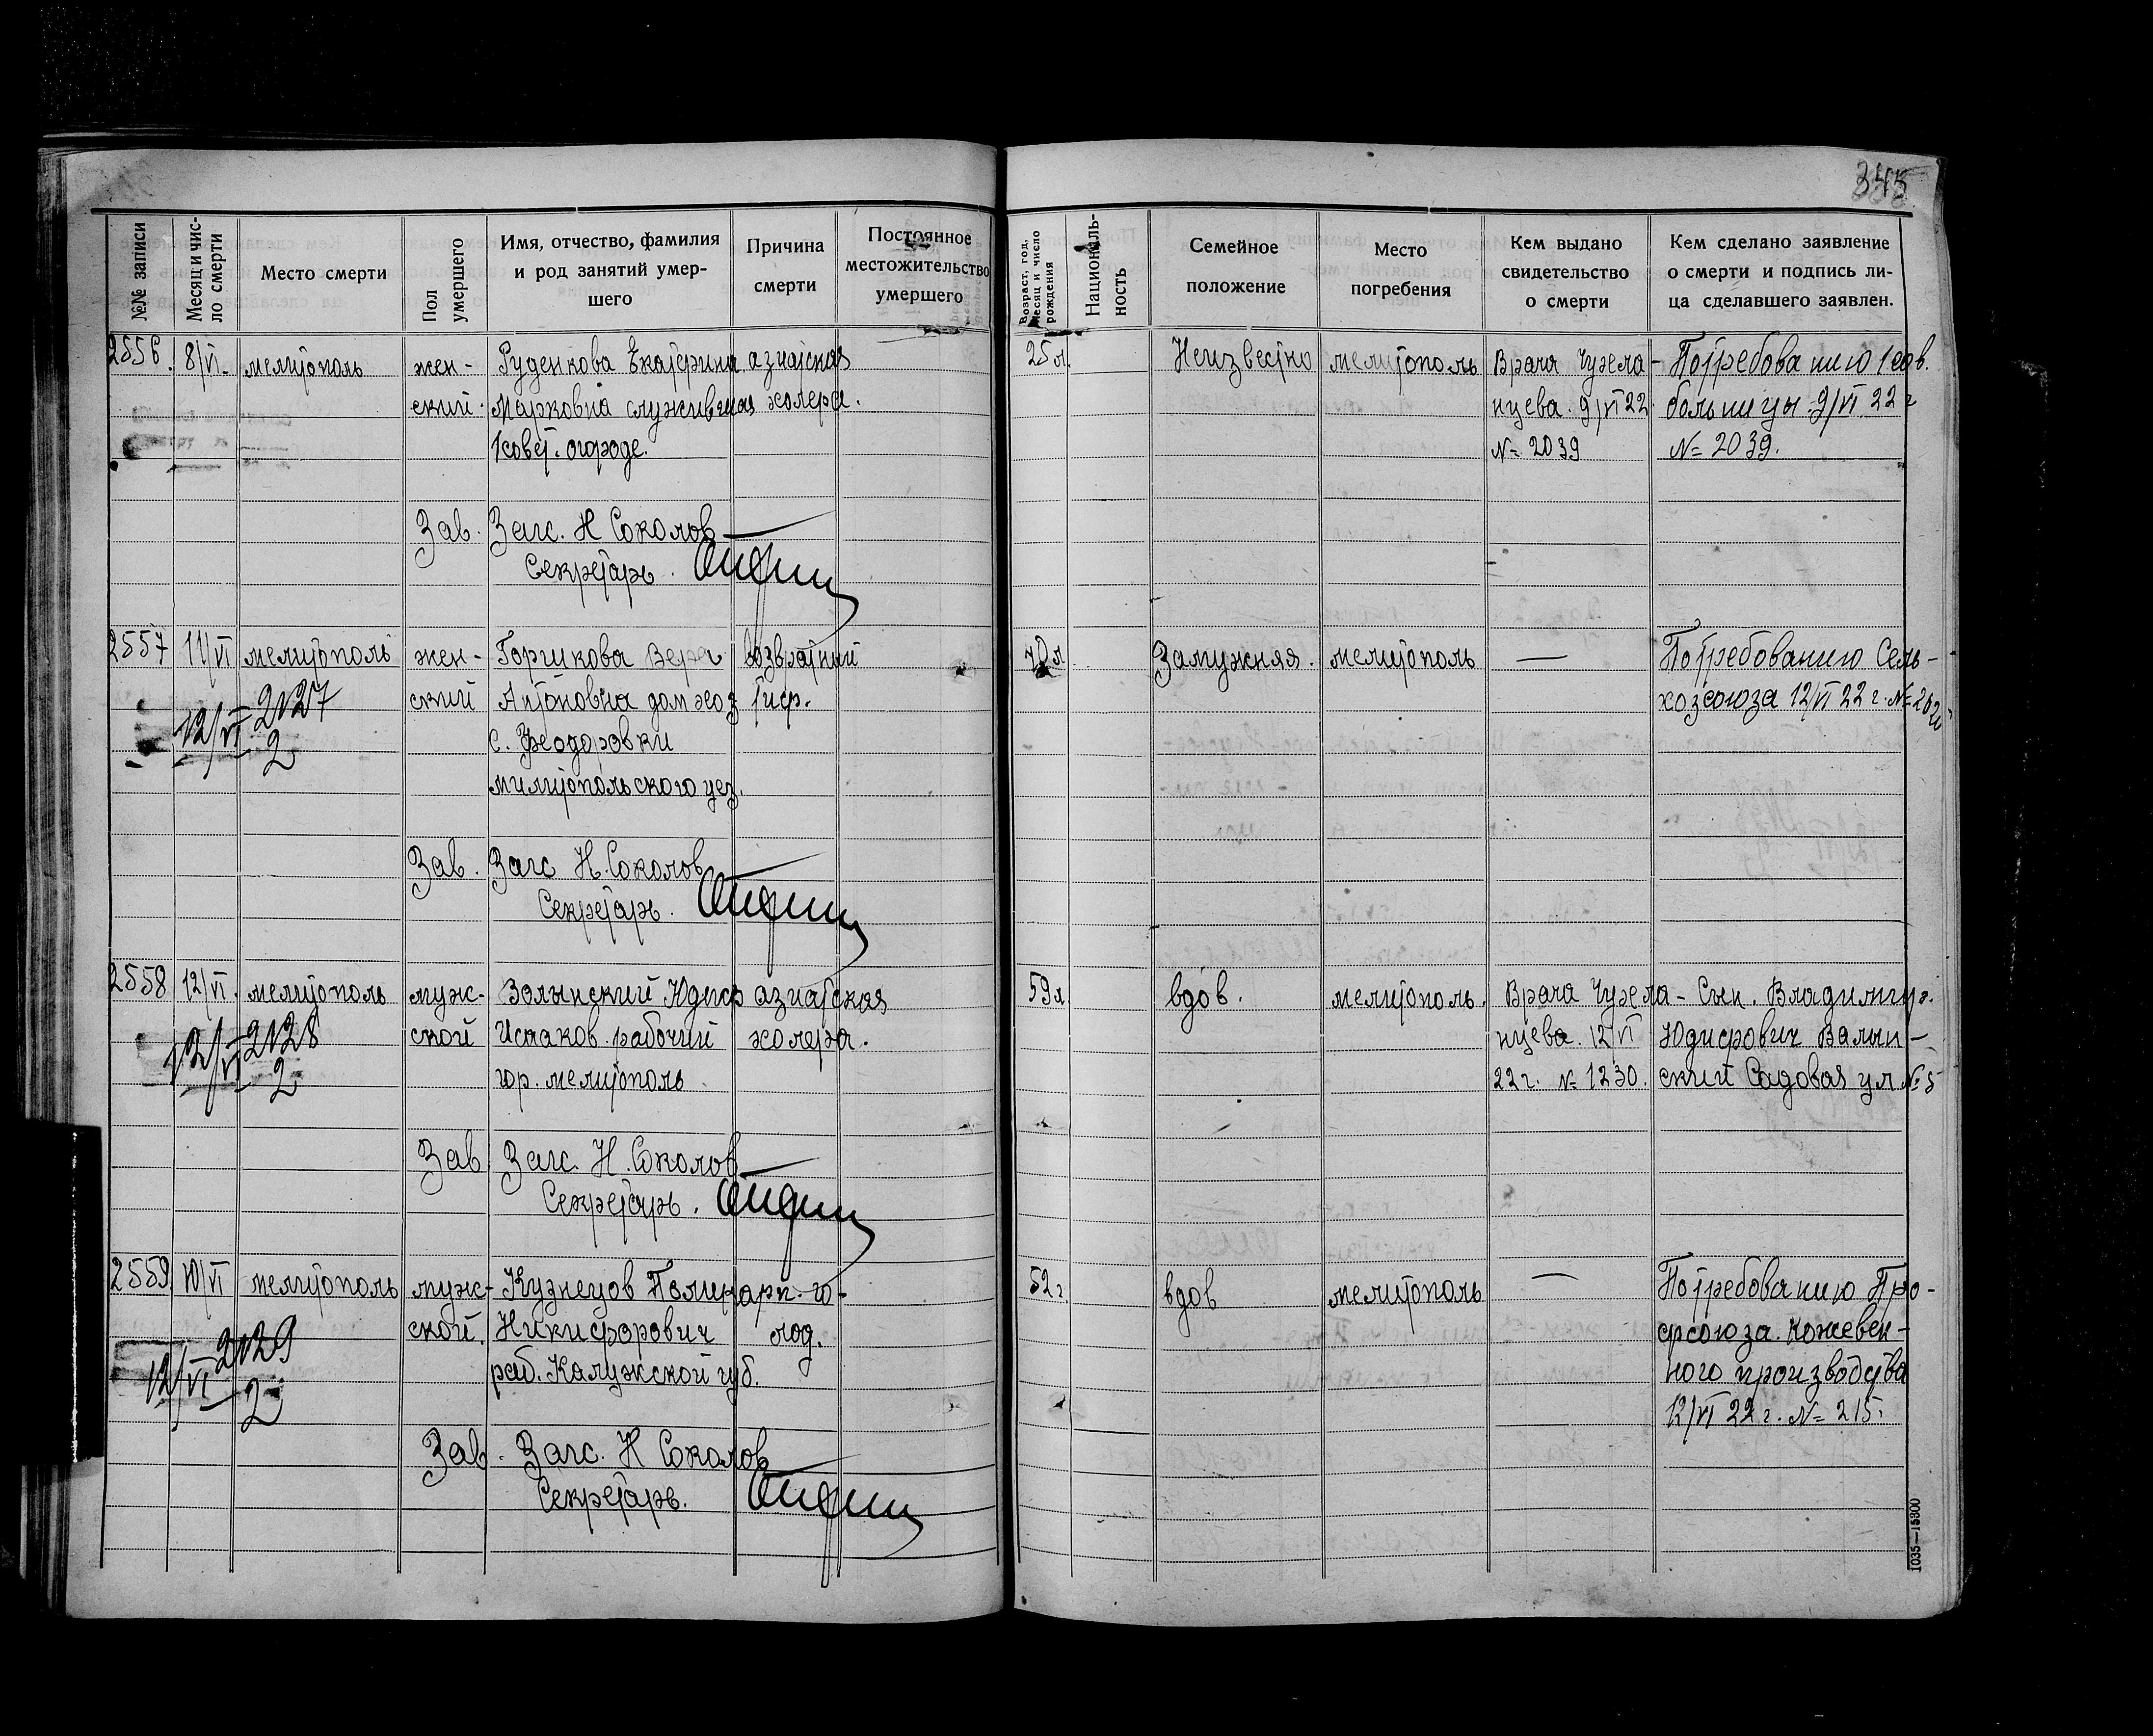 345
№№ записи
Месяц и чис-
ло смерти
Место смерти
Пол
умершего
Имя, отчество, фамилия
и род занятий умер-
шего
Причина
смерти
Постоянное
местожительство
умершего
Возраст, год,
месяц и число
рождения
Националь-
ность
Семейное
положение
Место
погребения
Кем выдано
свидетельство
о смерти
Кем сделано заявление
о смерти и подпись ли-
ца сделавшего заявлен.
2556. 8/VI. мелитополь жен- Руденкова Екатерина азиатская 25 л. Неизвестно мелитополь Врача Чузела- По требованию 1 сов.
ский. Марковна служившая холера. нцева. 9/VI 22 больницы 9/VI 22 г
1 совет. огороде. № 2039 № 2039.
Зав. Загс. Н Соколов
Секретарь.
2557 11/VI мелитополь жен- Горшкова Вера возвратный 40 л. Замужняя. мелитополь — По требованию Сель-
2127 ский Антоновна дом хоз тиф. хозсоюза 12/VI 22 г. №
12/VI 2 с. Феодоровки
милитопольского уез.
Зав. Загс Н. Соколов
Секретарь.
2558 12/VI. мелитополь муж- Волынский Юдиф азиатская 59 л вдов. мелитополь. Врача Чузела- Сын. Владимир.
2128 ской Исааков. рабочий холера. нцева. 12/VI Юдифович Валын-
12/VI 2 гор. мелитополь 22 г. № 1230. ский Садовая ул № 5
Зав Загс. Н. Соколов
Секретарь.
2559. 10/VI мелитополь муж- Кузнецов Поликарп. го- 52 г. вдов мелитополь — По требованию Про-
2129 ской. Никифорович лод. фсоюза. Кожевен-
12/VI 2 раб. Калужской губ. ного производства
12/VI 22 г. № 215.
Зав. Загс. Н Соколов
Секретарь.
1035—15300